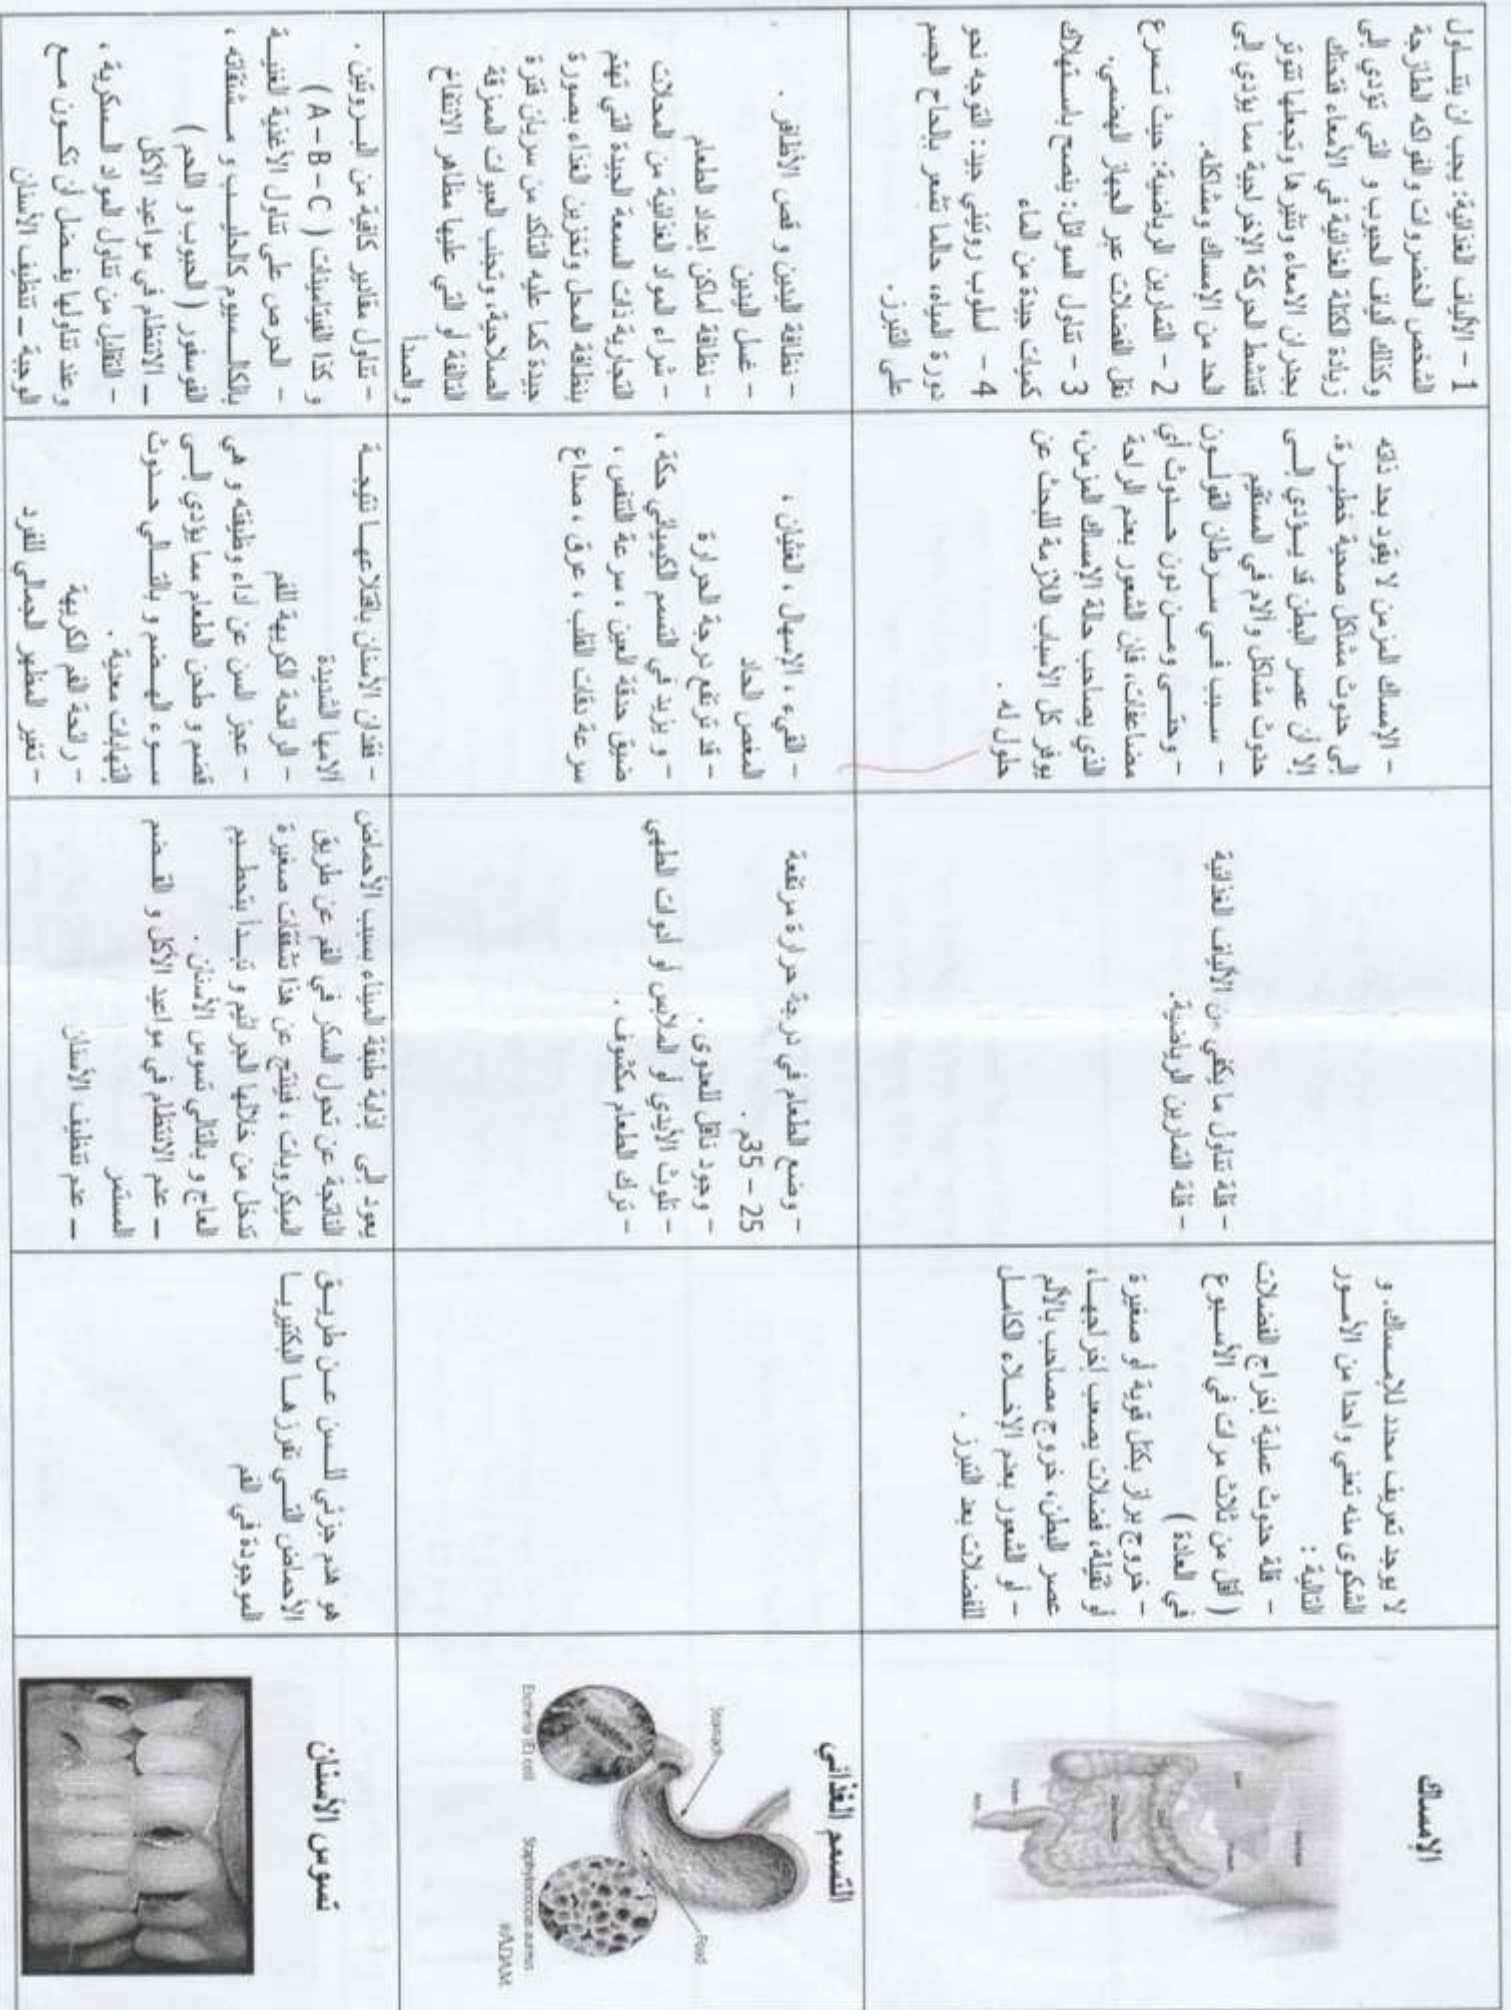 الإمساك
لا يوجد تعريف محدد للإمساك. و
الشكوى منه تعني واحدا من الأمور
التالية :
- قلة حدوث عملية إخراج الفضلات
( أقل من ثلاث مرات في الأسبوع
في العادة )
- خروج براز بكتل قوية أو صغيرة
أو ثقيلة، فضلات يصعب إخراجها،
عصر البطن، خروج مصاحب بالألم
- أو الشعور بعدم الإخلاء الكامل
للفضلات بعد التبرز .
- قلة تناول ما يكفي من الألياف الغذائية
- قلة التمارين الرياضية.
- الإمساك المزمن لا يقود بحد ذاته
إلى حدوث مشاكل صحية خطيرة.
إلا أن عصر البطن قد يؤدي إلى
حدوث مشاكل وآلام في المستقيم
- سبب في سرطان القولون
- وحتى ومن دون حدوث أي
مضاعفات، فإن الشعور بعدم الراحة
الذي يصاحب حالة الإمساك المزمن،
يوفر كل الأسباب اللازمة للبحث عن
حلول له .
1 - الألياف الغذائية: يجب ان يتناول
الشخص الخضروات والفواكه الطازجة
وكذلك ألياف الحبوب و التي تؤدي إلى
زيادة الكتلة الغذائية في الأمعاء فتحتك
بجدران الامعاء وتثيرها وتجعلها تتوتر
فتنشط الحركة الإخراجية مما يؤدي إلى
الحد من الإمساك ومشاكله.
2 - التمارين الرياضية: حيث تسرع
نقل الفضلات عبر الجهاز الهضمي.
3 - تناول السوائل: ينصح باستهلاك
كميات جيدة من الماء
4 - أسلوب روتيني جيد: التوجه نحو
دورة المياه، حالما تشعر بإلحاح الجسم
على التبرز .
التسمم الغذائي
Stomach
Food
Escheria El cell
Staphylococcus aureus
©ADAM.
- وضع الطعام في درجة حرارة مرتفعة
25 – 35م .
- وجود ناقل للعدوى .
- تلوث الأيدي أو الملابس أو أدوات الطهي
- ترك الطعام مكشوف .
- القيء ، الإسهال ، الغثيان ،
المغص الحاد
- قد ترتفع درجة الحرارة
- و يزيد في التسمم الكيميائي حكة ،
ضيق حدقة العين ، سرعة التنفس ،
سرعة دقات القلب ، عرق ، صداع
- نظافة اليدين و قص الأظافر .
- غسل اليدين
- نظافة أماكن إعداد الطعام
- شراء المواد الغذائية من المحلات
التجارية ذات السمعة الجيدة التي تهتم
بنظافة المحل وتخزين الغذاء بصورة
جيدة كما عليه التأكد من سريان فترة
الصلاحية، وتجنب العبوات الممزقة
التالفة أو التي عليها مظاهر الانتفاخ
والصدأ
تسوس الأسنان
هو هدم جزئي للسن عن طريق
الأحماض التي تفرزها البكتيريا
الموجودة في الفم
يعود إلى إذابة طبقة الميناء بسبب الأحماض
الناتجة عن تحول السكر في الفم عن طريق
الميكروبات ، فينتج عن هذا تشققات صغيرة
تدخل من خلالها الجراثيم و تبدأ بتحطيم
العاج و بالتالي تسوس الأسنان .
ــ عدم الانتظام في مواعيد الأكل و القضم
المستمر
ــ عدم تنظيف الأسنان
- فقدان الأسنان باقتلاعها نتيجة
آلامها الشديدة
- الرائحة الكريهة للفم
- عجز السن عن أداء وظيفته و هي
قضم و طحن الطعام مما يؤدي إلى
سوء الهضم و بالتالي حدوث
التهابات معدية .
- رائحة الفم الكريهة
- تغير المظهر الجمالي للفرد
- تناول مقادير كافية من البروتين .
و كذا الفيتامينات ( A – B – C )
- الحرص على تناول الأغذية الغنية
بالكالسيوم كالحليب و مشتقاته ،
الفوسفور ( الحبوب و اللحم )
ــ الانتظام في مواعيد الأكل
- التقليل من تناول المواد السكرية ،
وعند تناولها يفضل أن تكون مع
الوجبة ــ تنظيف الأسنان